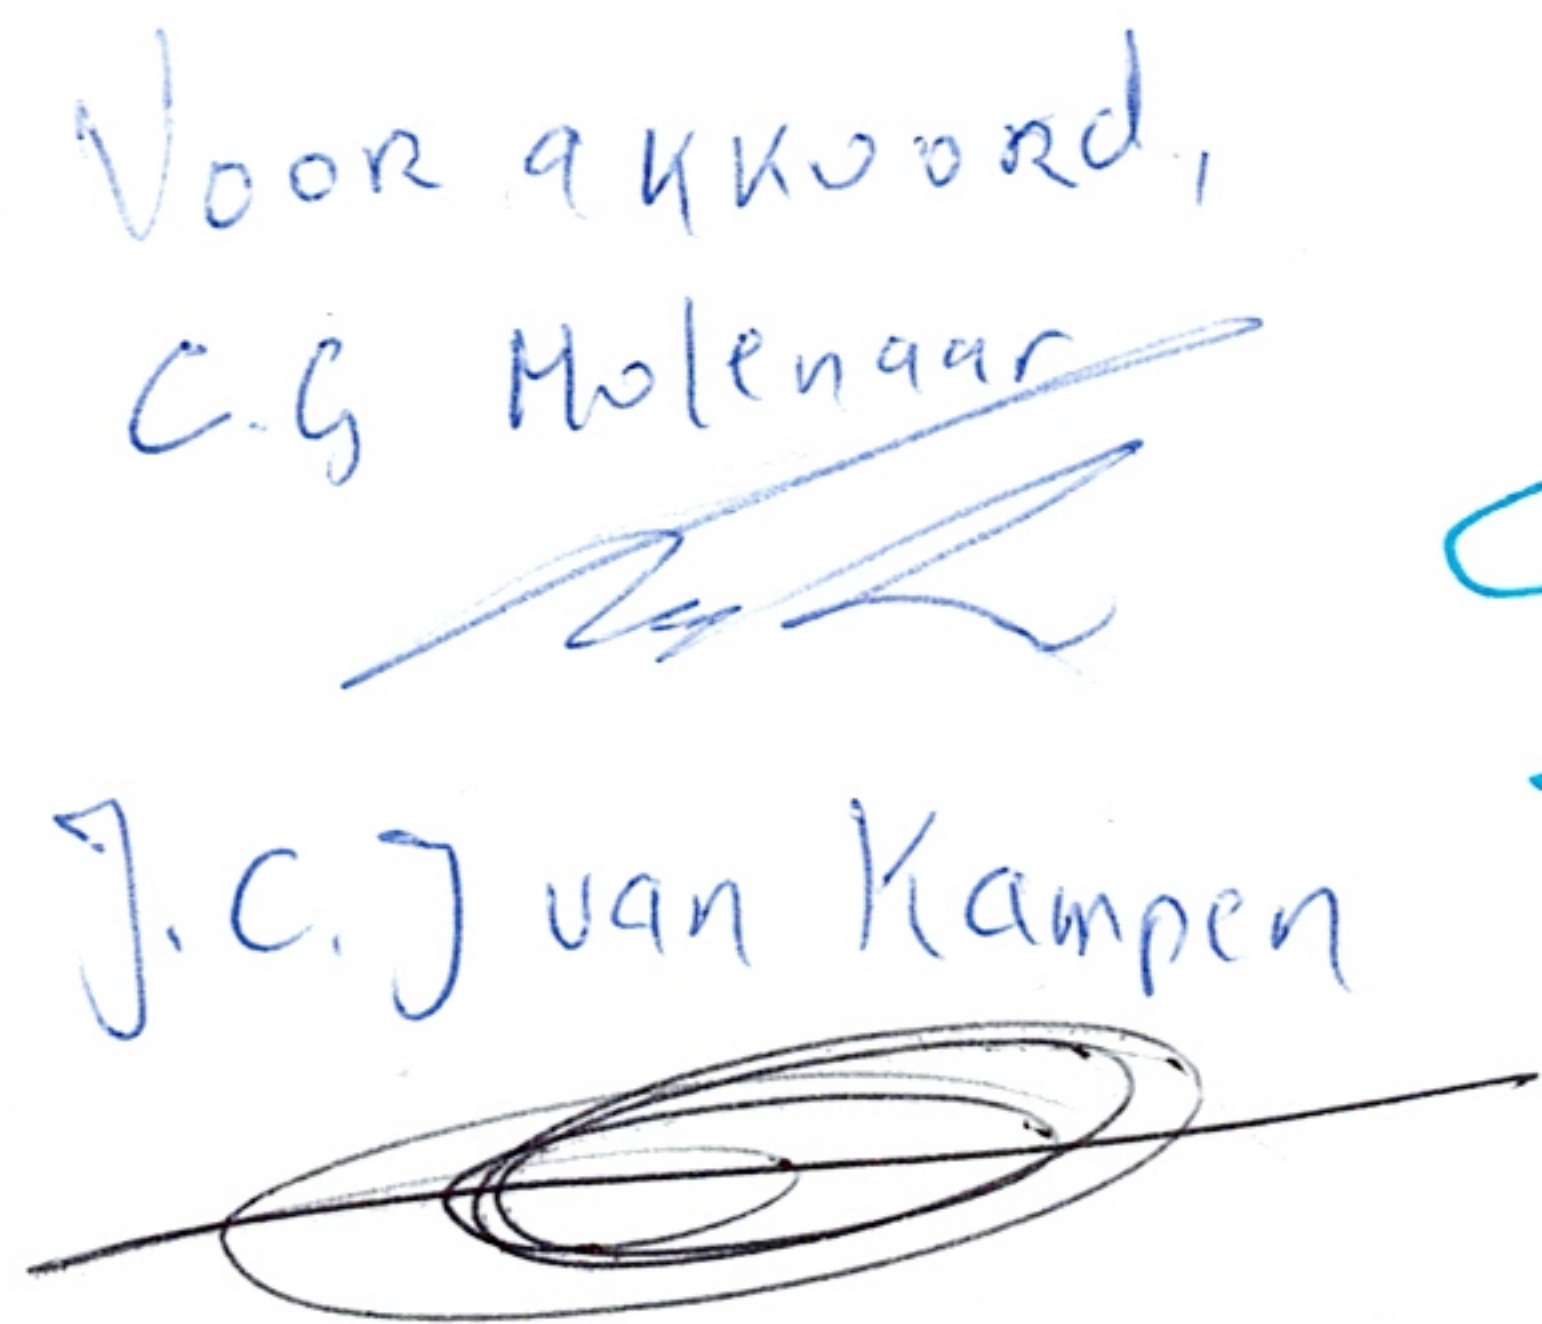 Voor akkoord,
C.G Molenaar
J.C.J van Kampen